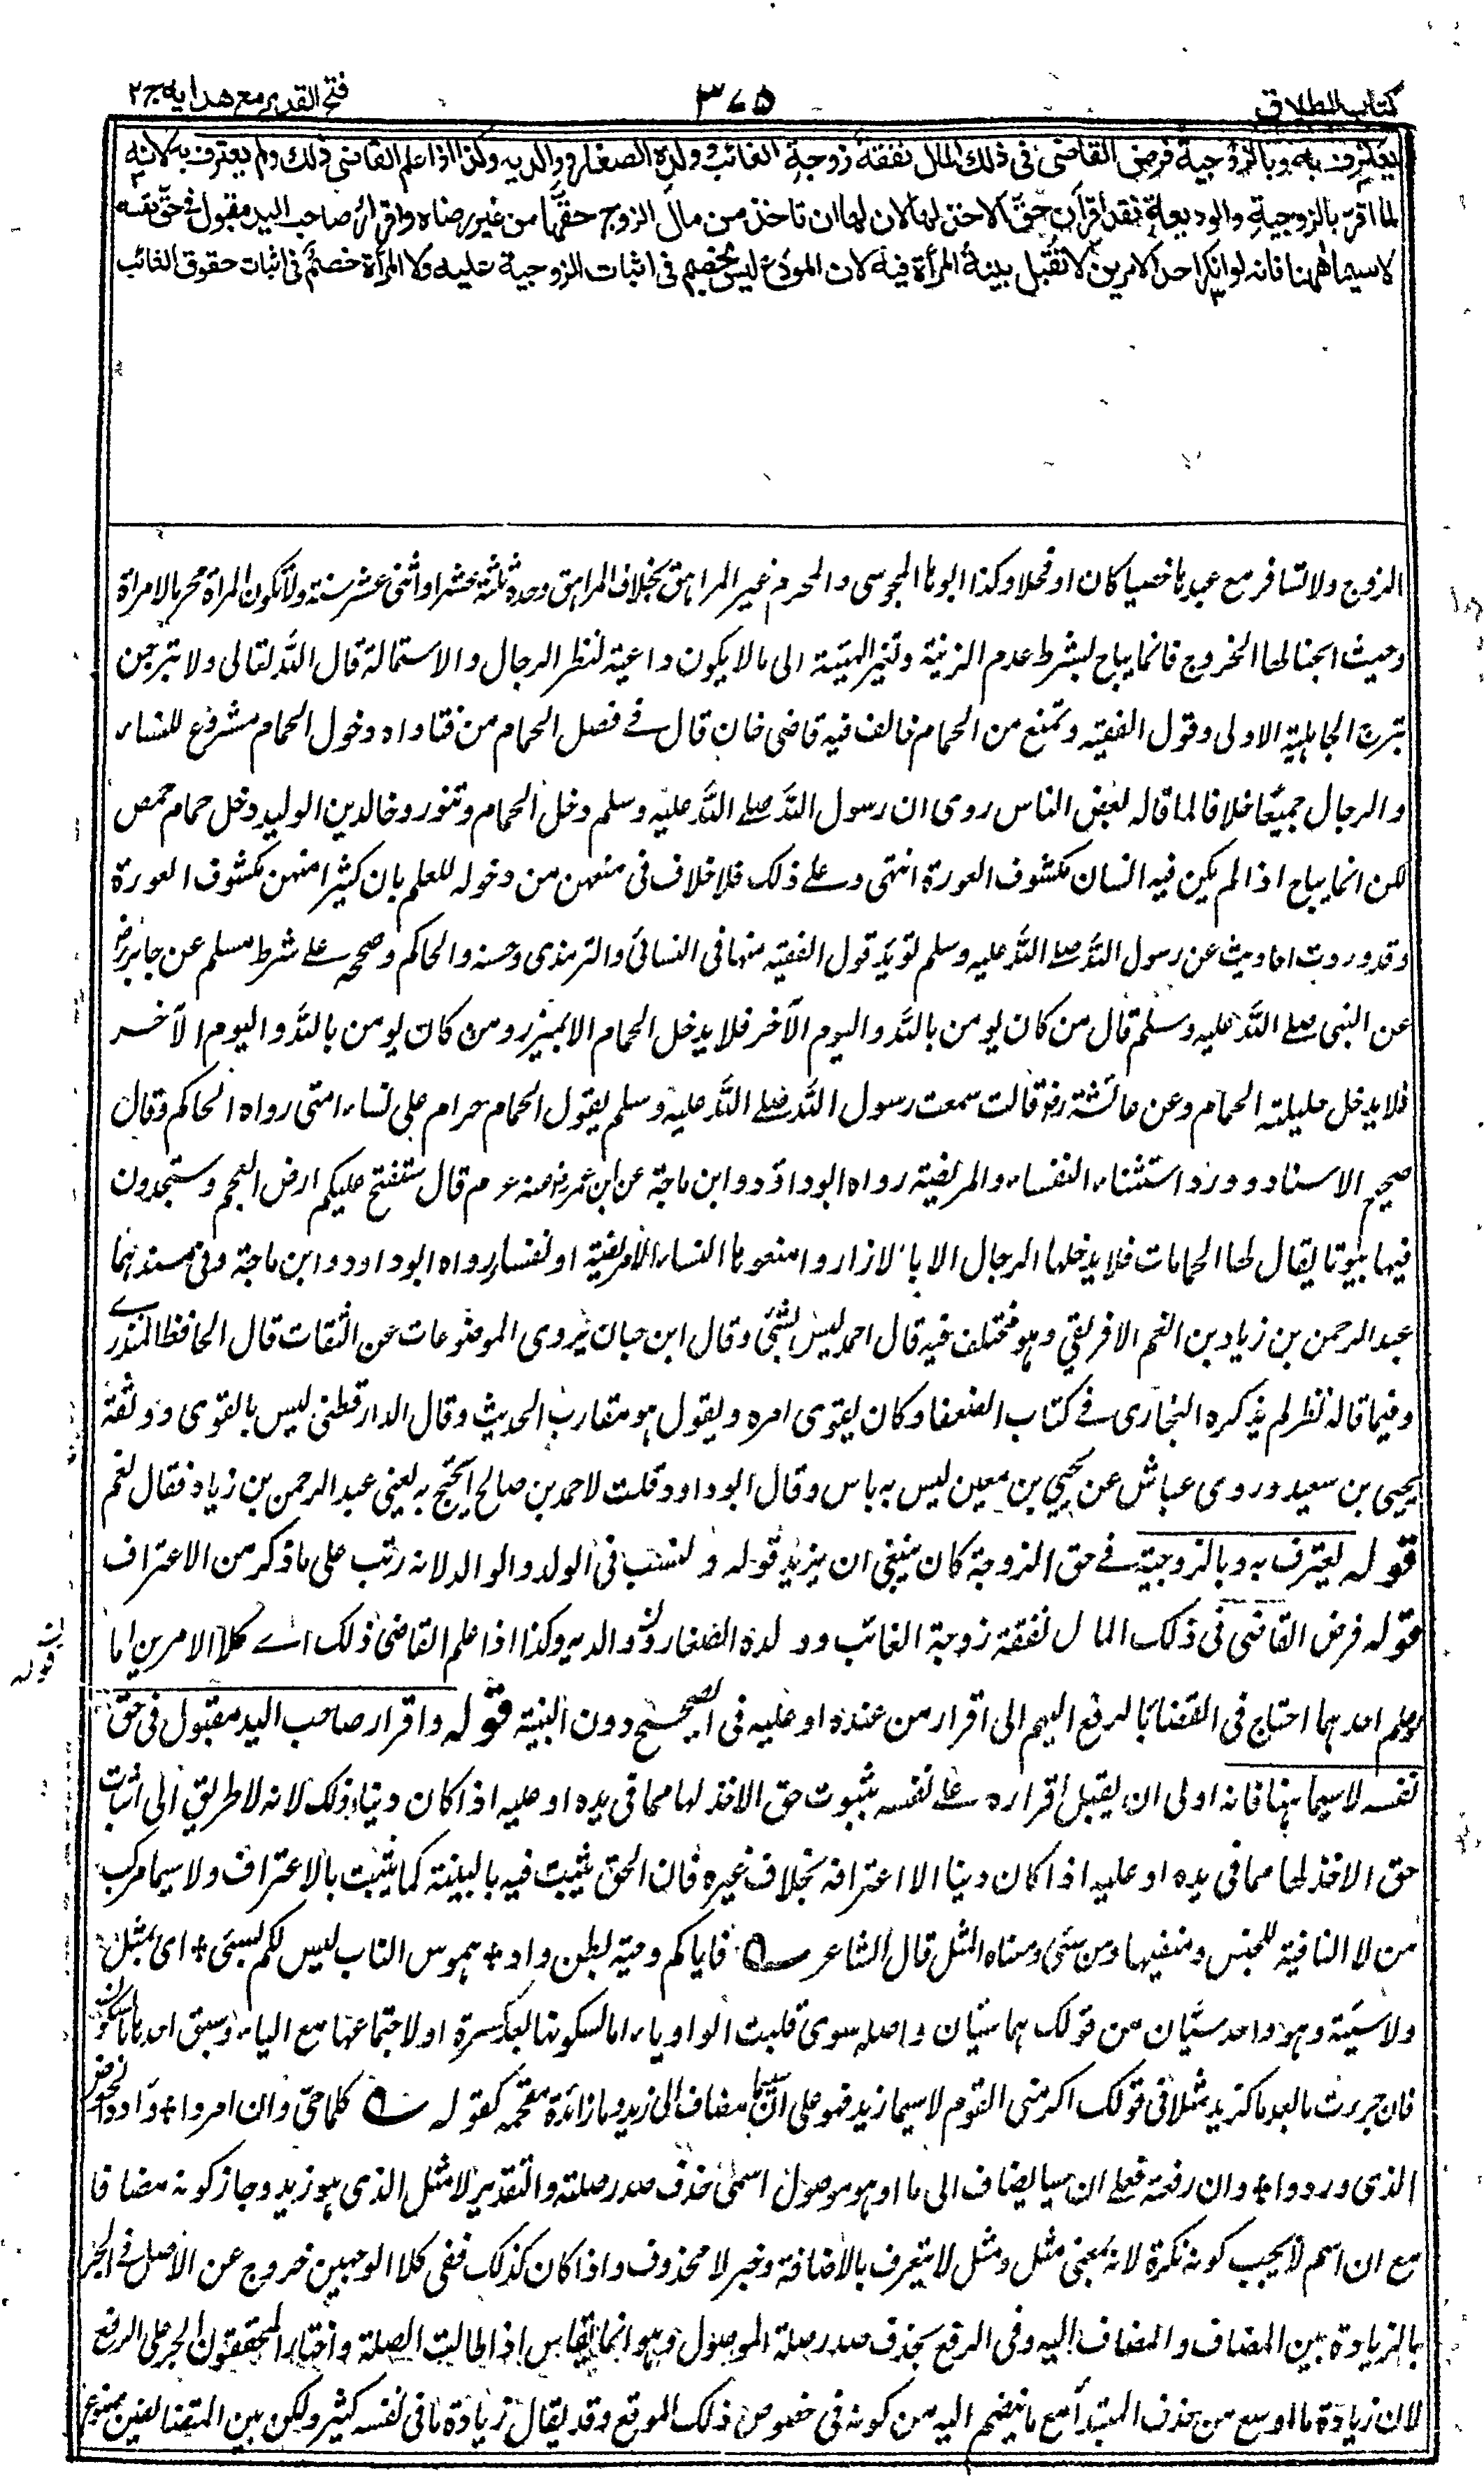 كتاب الطلاق
٣٧٥
فتح القدير مع هدايه ج٢
يعترف به وبالزوجية فرض القاضى فى ذلك المال نفقة زوجة الغائب وولده الصغار ووالديه وكذا اذا علم القاضى ذلك ولم يعترف به لانه
لما اقر بالزوجية والوديعة فقد اقر ان حق الاخذ لها لان لها ان تاخذ من مال الزوج حقها من غير رضاه واقرار صاحب اليد مقبول فى حق نفسه
لاسيما ههنا فانه لو انكر احد الامرين لا تقبل بينة المرأة فيه لان المودع ليس بخصم فى اثبات الزوجية عليه ولا المرأة خصم فى اثبات حقوق الغائب
الزوج ولا تسافر مع عبدها خصيا كان او فحلا وكذا ابوها المجوسى والمحرم غير المراهق بخلاف المراهق وحده ثلثة عشر او اثنى عشر سنة ولا تكون المراة محرما لامراة
وحيث ابحنا لها الخروج فانما يباح بشرط عدم الزينة وتغير الهيئة الى ما لا يكون داعية لنظر الرجال والاستمالة قال الله تعالى ولا تبرجن
تبرج الجاهلية الاولى وقول الفقيه وتمنع من الحمام خالف فيه قاضى خان قال فى فصل الحمام من فتاواه دخول الحمام مشروع للنساء
والرجال جميعا خلافا لما قاله بعض الناس روى ان رسول الله صلے الله عليه وسلم دخل الحمام وتنور وخالد بن الوليد دخل حمام حمص
لكن انما يباح اذا لم يكن فيه انسان مكشوف العورة انتهى وعلے ذلك فلا خلاف فى منعهن من دخوله للعلم بان كثيرا منهن مكشوف العورة
وقد وردت احاديث عن رسول الله صلے الله عليه وسلم تؤيد قول الفقيه منها فى النسائى والترمذى وحسنه والحاكم وصححه علے شرط مسلم عن جابر رض
عن النبى صلے الله عليه وسلم قال من كان يومن بالله واليوم الآخر فلا يدخل الحمام الا بميزر ومن كان يومن بالله واليوم الآخر
فلا يدخل حليلته الحمام وعن عائشة رض قالت سمعت رسول الله صلے الله عليه وسلم يقول الحمام حرام على نساء امتى رواه الحاكم وقال
صحيح الاسناد وورد استثناء النفساء والمريضة رواه ابو داؤد وابن ماجة عن ابن عمر رض عنه ع م قال ستفتح عليكم ارض العجم وستجدون
فيها بيوتا يقال لها الحمامات فلا يدخلها الرجال الا بالازار وامنعوها النساء الا مريضة او نفساء رواه ابو داود وابن ماجة وفى سندهما
عبد الرحمن بن زياد بن انعم الافريقي وهو مختلف فيه قال احمد ليس بشئ وقال ابن حبان يروى الموضوعات عن الثقات قال الحافظ المنذرے
وفيما قاله نظر لم يذكره البخارى فے كتاب الضعفا وكان يقوى امره ويقول هو مقارب الحديث وقال الدارقطنى ليس بالقوى ووثقة
يحيى بن سعيد وروى عباش عن يحيي بن معين ليس به باس وقال ابو داود قلت لاحمد بن صالح ايحتج به يعنى عبد الرحمن بن زياد فقال نعم
قوله يعترف به وبالزوجية فے حق الزوجة كان ينبغى ان يزيد قوله والنسب فى الولد والوالد لانه رتب على ما ذكر من الاعتراف
قوله فرض القاضى فى ذلك المال نفقة زوجة الغائب وولده الصغار ووالديه وكذا اذا علم القاضى ذلك اے كلا الامرين اما
لو علم احدهما احتاج فى القضا بالدفع اليهم الى اقرار من عنده او عليه فى الصحيح دون البينة قوله واقرار صاحب اليد مقبول فى حق
نفسه لاسيما ههنا فانه اولى ان يقبل اقراره علے نفسه بثبوت حق الاخذ لها مما فى يده او عليه اذا كان دينا وذلك لانه لا طريق الى اثبات
حق الاخذ لها مما فى يده او عليه اذا كان دينا الا اعترافه بخلاف غيره فان الحق يثبت فيه بالبينة كما يثبت بالاعتراف ولاسيما مركب
من لا النافية للجنس ومنفيها ومن سئى ومعناه المثل قال الشاعر ے فاياكم وحية بطن واد + هموس الناب ليس لكم بسئى + اى بمثل
ولاسيئة وهو واحد سيّان من قولك هما سيّان واصله سوى قلبت الواو ياء اما لسكونها بعد كسرة او لاجتماعها مع الياء وسبق احدهما بالسكون
فان جررت ما بعد ما كزيد مثلا فى قولك اكرمنى القوم لاسيما زيد فهو على ان سيما مضاف الى زيد وما زائدة مقحمة كقوله ے كلما حى وان امروا + واردوا الحوض
الذى وردوا + وان رفعته فعلے ان سيا يضاف الى ما او هو موصول اسمى حذف صدر صلته والتقدير لا مثل الذى هو زيد وجاز كونه مضافا
مع ان اسم لا يجب كونه نكرة لانه بمعنى مثل ومثل لا يتعرف بالاضافة وخبر لا محذوف واذا كان كذلك ففى كلا الوجهين خروج عن الاصل فے الجر
بالزيادة بين المضاف والمضاف اليه وفى الرفع بحذف صدر صلة الموصول وهو انما يقاس اذا طالت الصلة واختار المحققون الجر على الرفع
لان زيادة ما اوسع من حذف المبتدأ مع ما ينضم اليه من كونه فى خصوص ذلك الموقع وقد يقال زيادة ما فى نفسه كثير ولكن بين المتضائفين ممنوع